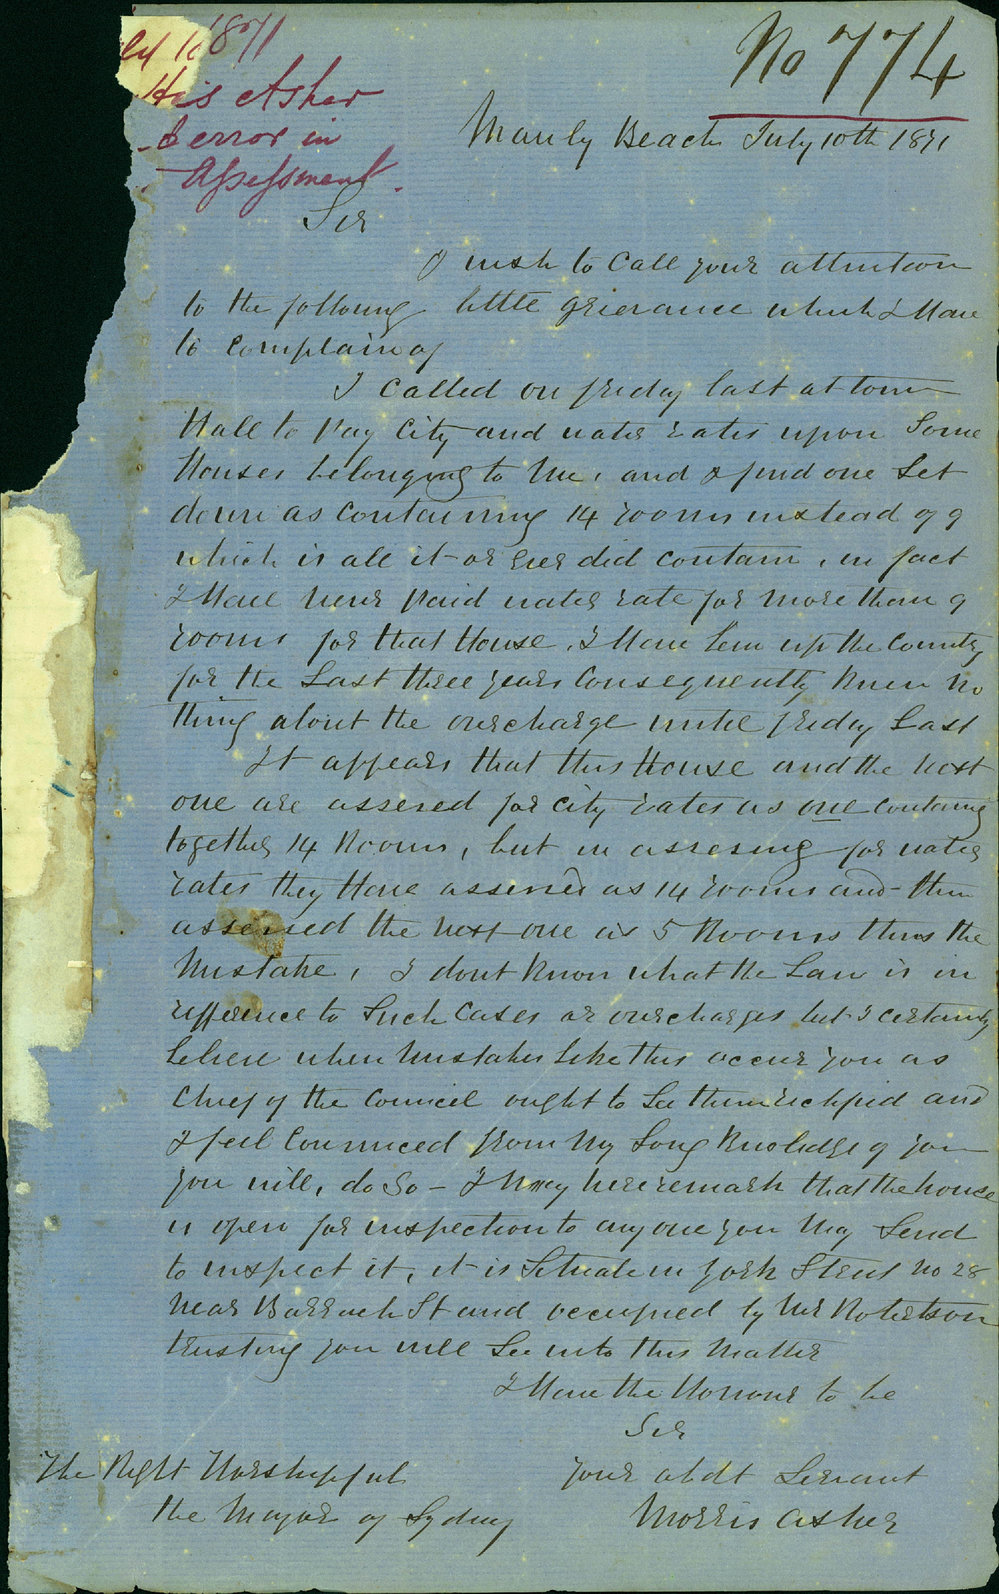 No 774
1871
His Asher
error in
Assessment.
Manly Beach July 10th 1871
Sir
I wish to Call your attention
to the following little grievance which I Have
to Complain of
I Called on friday last at town
Hall to Pay City and water rates upon Some
Houses belonging to Me, and I find one Set
down as Containing 14 rooms instead of 9
which is all it or Ever did Contain, in fact
I Have never Paid water rate for More than 9
rooms for that House, I Have been up the Country
for the Last three years Consequently Knew No
thing about the overcharge until friday Last
It appears that this House and the Next
one are assesed for City rates as one Containing
together 14 Rooms, but in assesing for water
rates they Have assesed as 14 rooms and then
assessed the Next one as 5 Rooms thus the
Mistake, I dont Know what the Law is in
refference to Such Cases or overcharges but I certainly
beleive when Mistakes Like this occur you as
Chief of the Council ought to See them rectified and
I feel Convinced from My Long Knoledge of you
you will, do So - I May here remark that the house
is open for inspection to any one you May Send
to inspect it, it is Situate in York Street No 28
Near Barrack St and occupied by Mr Robertson
trusting you will See into this Matter
I Have the Honour to be
Sir
The Right Worshipful your obdt Servant
the Mayor of Sydney Morris Asher